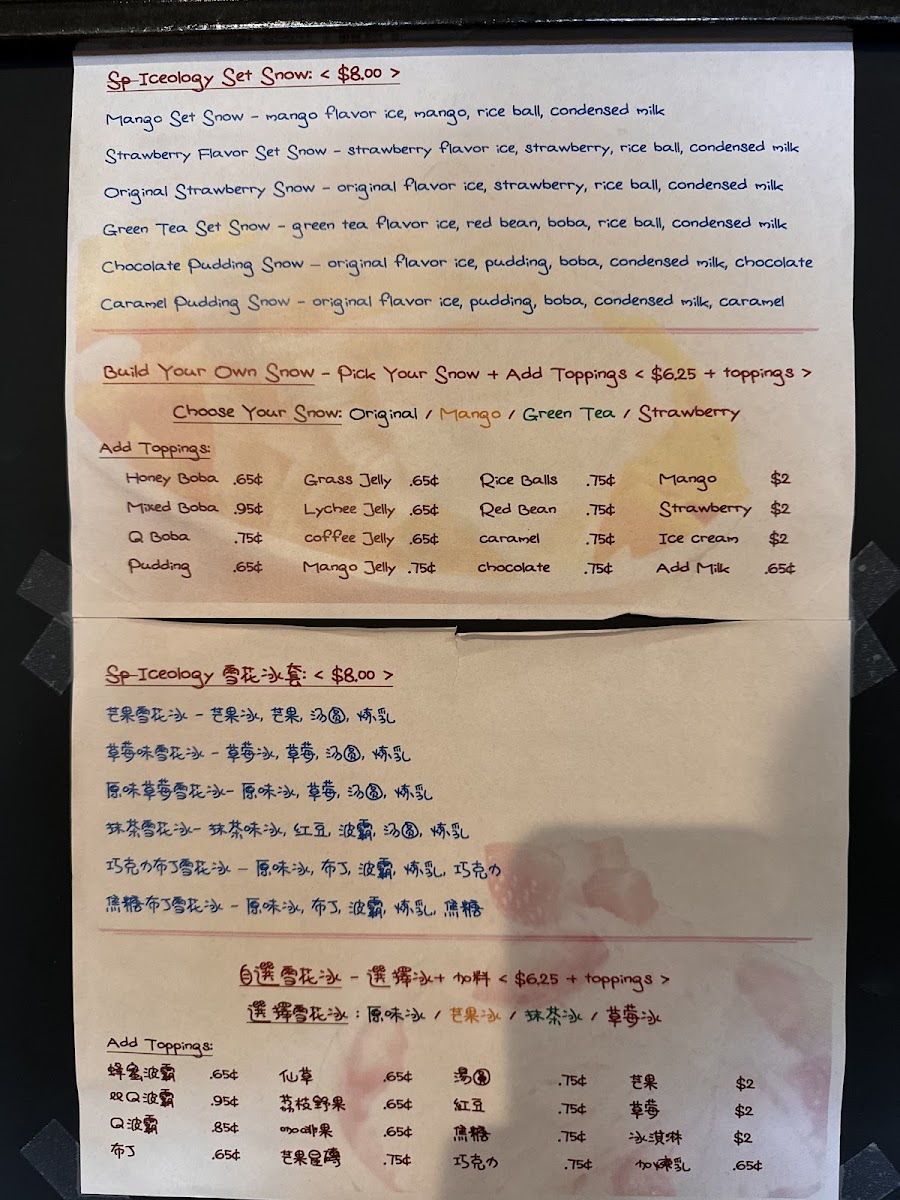 Sp-Iceology Set Snow: < $8.00 >
Mango Set Snow - mango flavor ice, mango, rice ball, condensed milk
Strawberry Flavor Set Snow - strawberry flavor ice, strawberry, rice ball, condensed milk
Original Strawberry Snow - original flavor ice, strawberry, rice ball, condensed milk
Green Tea Set Snow - green tea flavor ice, red bean, boba, rice ball, condensed milk
Chocolate Pudding Snow - original flavor ice, pudding, boba, condensed milk, chocolate
Caramel Pudding Snow - original flavor ice, pudding, boba, condensed milk, caramel
Build Your Own Snow - Pick Your Snow + Add Toppings < $6.25 + toppings >
Choose Your Snow: Original / Mango / Green Tea / Strawberry
Add Toppings:
Honey Boba .65¢ Grass Jelly .65¢ Rice Balls .75¢ Mango $2
Mixed Boba .95¢ Lychee Jelly .65¢ Red Bean .75¢ Strawberry $2
Q Boba .75¢ coffee Jelly .65¢ caramel .75¢ Ice cream $2
Pudding .65¢ Mango Jelly .75¢ chocolate .75¢ Add Milk .65¢
Sp-Iceology 雪花冰套: < $8.00 >
芒果雪花冰 - 芒果冰, 芒果, 汤圆, 炼乳
草莓味雪花冰 - 草莓冰, 草莓, 汤圆, 炼乳
原味草莓雪花冰- 原味冰, 草莓, 汤圆, 炼乳
抹茶雪花冰- 抹茶味冰, 红豆, 波霸, 汤圆, 炼乳
巧克力布丁雪花冰 - 原味冰, 布丁, 波霸, 炼乳, 巧克力
焦糖布丁雪花冰 - 原味冰, 布丁, 波霸, 炼乳, 焦糖
自選雪花冰 - 選擇冰+ 加料 < $6.25 + toppings >
選擇雪花冰 : 原味冰 / 芒果冰 / 抹茶冰 / 草莓冰
Add Toppings:
蜂蜜波霸 .65¢ 仙草 .65¢ 湯圓 .75¢ 芒果 $2
双Q波霸 .95¢ 荔枝野果 .65¢ 紅豆 .75¢ 草莓 $2
Q波霸 .85¢ 咖啡果 .65¢ 焦糖 .75¢ 冰淇淋 $2
布丁 .65¢ 芒果星磚 .75¢ 巧克力 .75¢ 加煉乳 .65¢